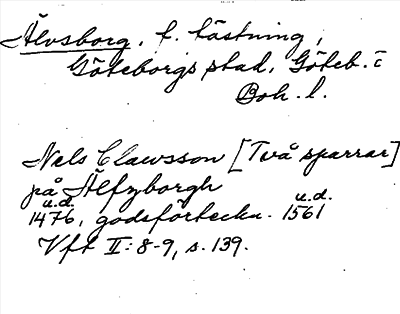 Älvsborg, f. fästning,
Göteborgs stad, Göteb. o
Boh. l.
Nels Clawsson [Två sparrar]
på Älfzborgh
u.d. u.d.
1476, godsförteckn. 1561
Vft II: 8-9, s. 139.